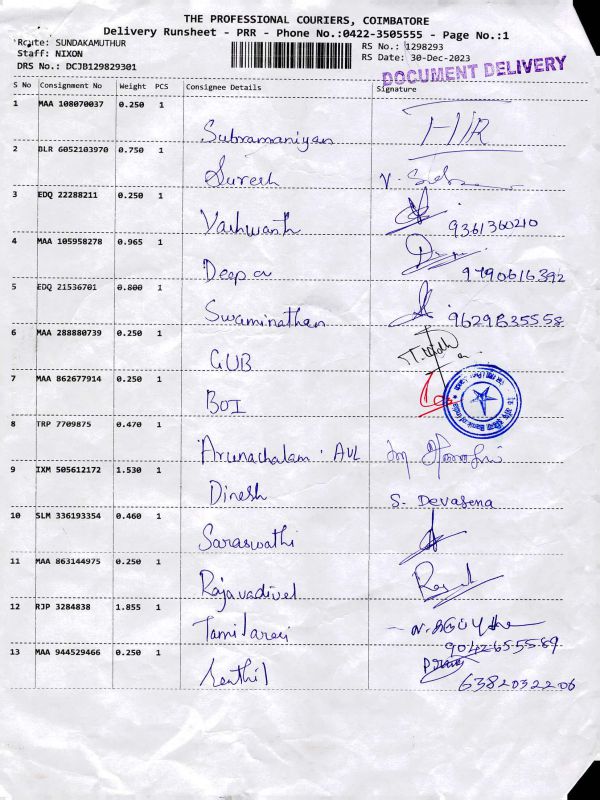 THE PROFESSIONAL COURIERS, COIMBATORE
Delivery Runsheet - PRR - Phone No.:0422-3505555 - Page No.:1
Route: SUNDAKAMUTHUR
Staff: NIXON
DRS No.: DCJB129829301
RS No.: 1298293
RS Date: 30-Dec-2023
DOCUMENT DELIVERY
S No Consignment No Weight PCS Consignee Details Signature
1 MAA 108070037 0.250 1
Subramaniyan
2 BLR 6052103970 0.750 1
Suresh V.
3 EDQ 22288211 0.250 1
Yashwanth 9361360210
4 MAA 105958278 0.965 1
Deepa 9790616392
5 EDQ 21536701 0.800 1
Swaminathan 9629835558
6 MAA 288880739 0.250 1
CUB
7 MAA 862677914 0.250 1
BOI Bank of India
8 TRP 7709875 0.470 1
Arunachalam. AVL
9 IXM 505612172 1.530 1
Dinesh S. Devasena
10 SLM 336193354 0.460 1
Saraswathi
11 MAA 863144975 0.250 1
Rajavadivel
12 RJP 3284838 1.855 1
Tamilarasi
9042655589
13 MAA 944529466 0.250 1
Senthil 6382032206